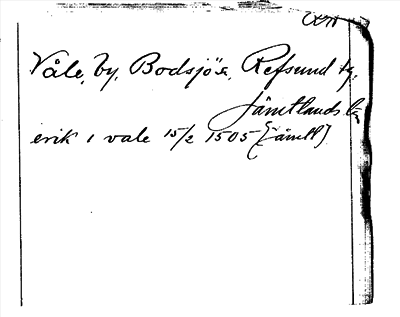 Våle, by, Bodsjö s., Refsund tg,
Jämtlands l.
erik i vale 15/2 1505 (Jämtl)